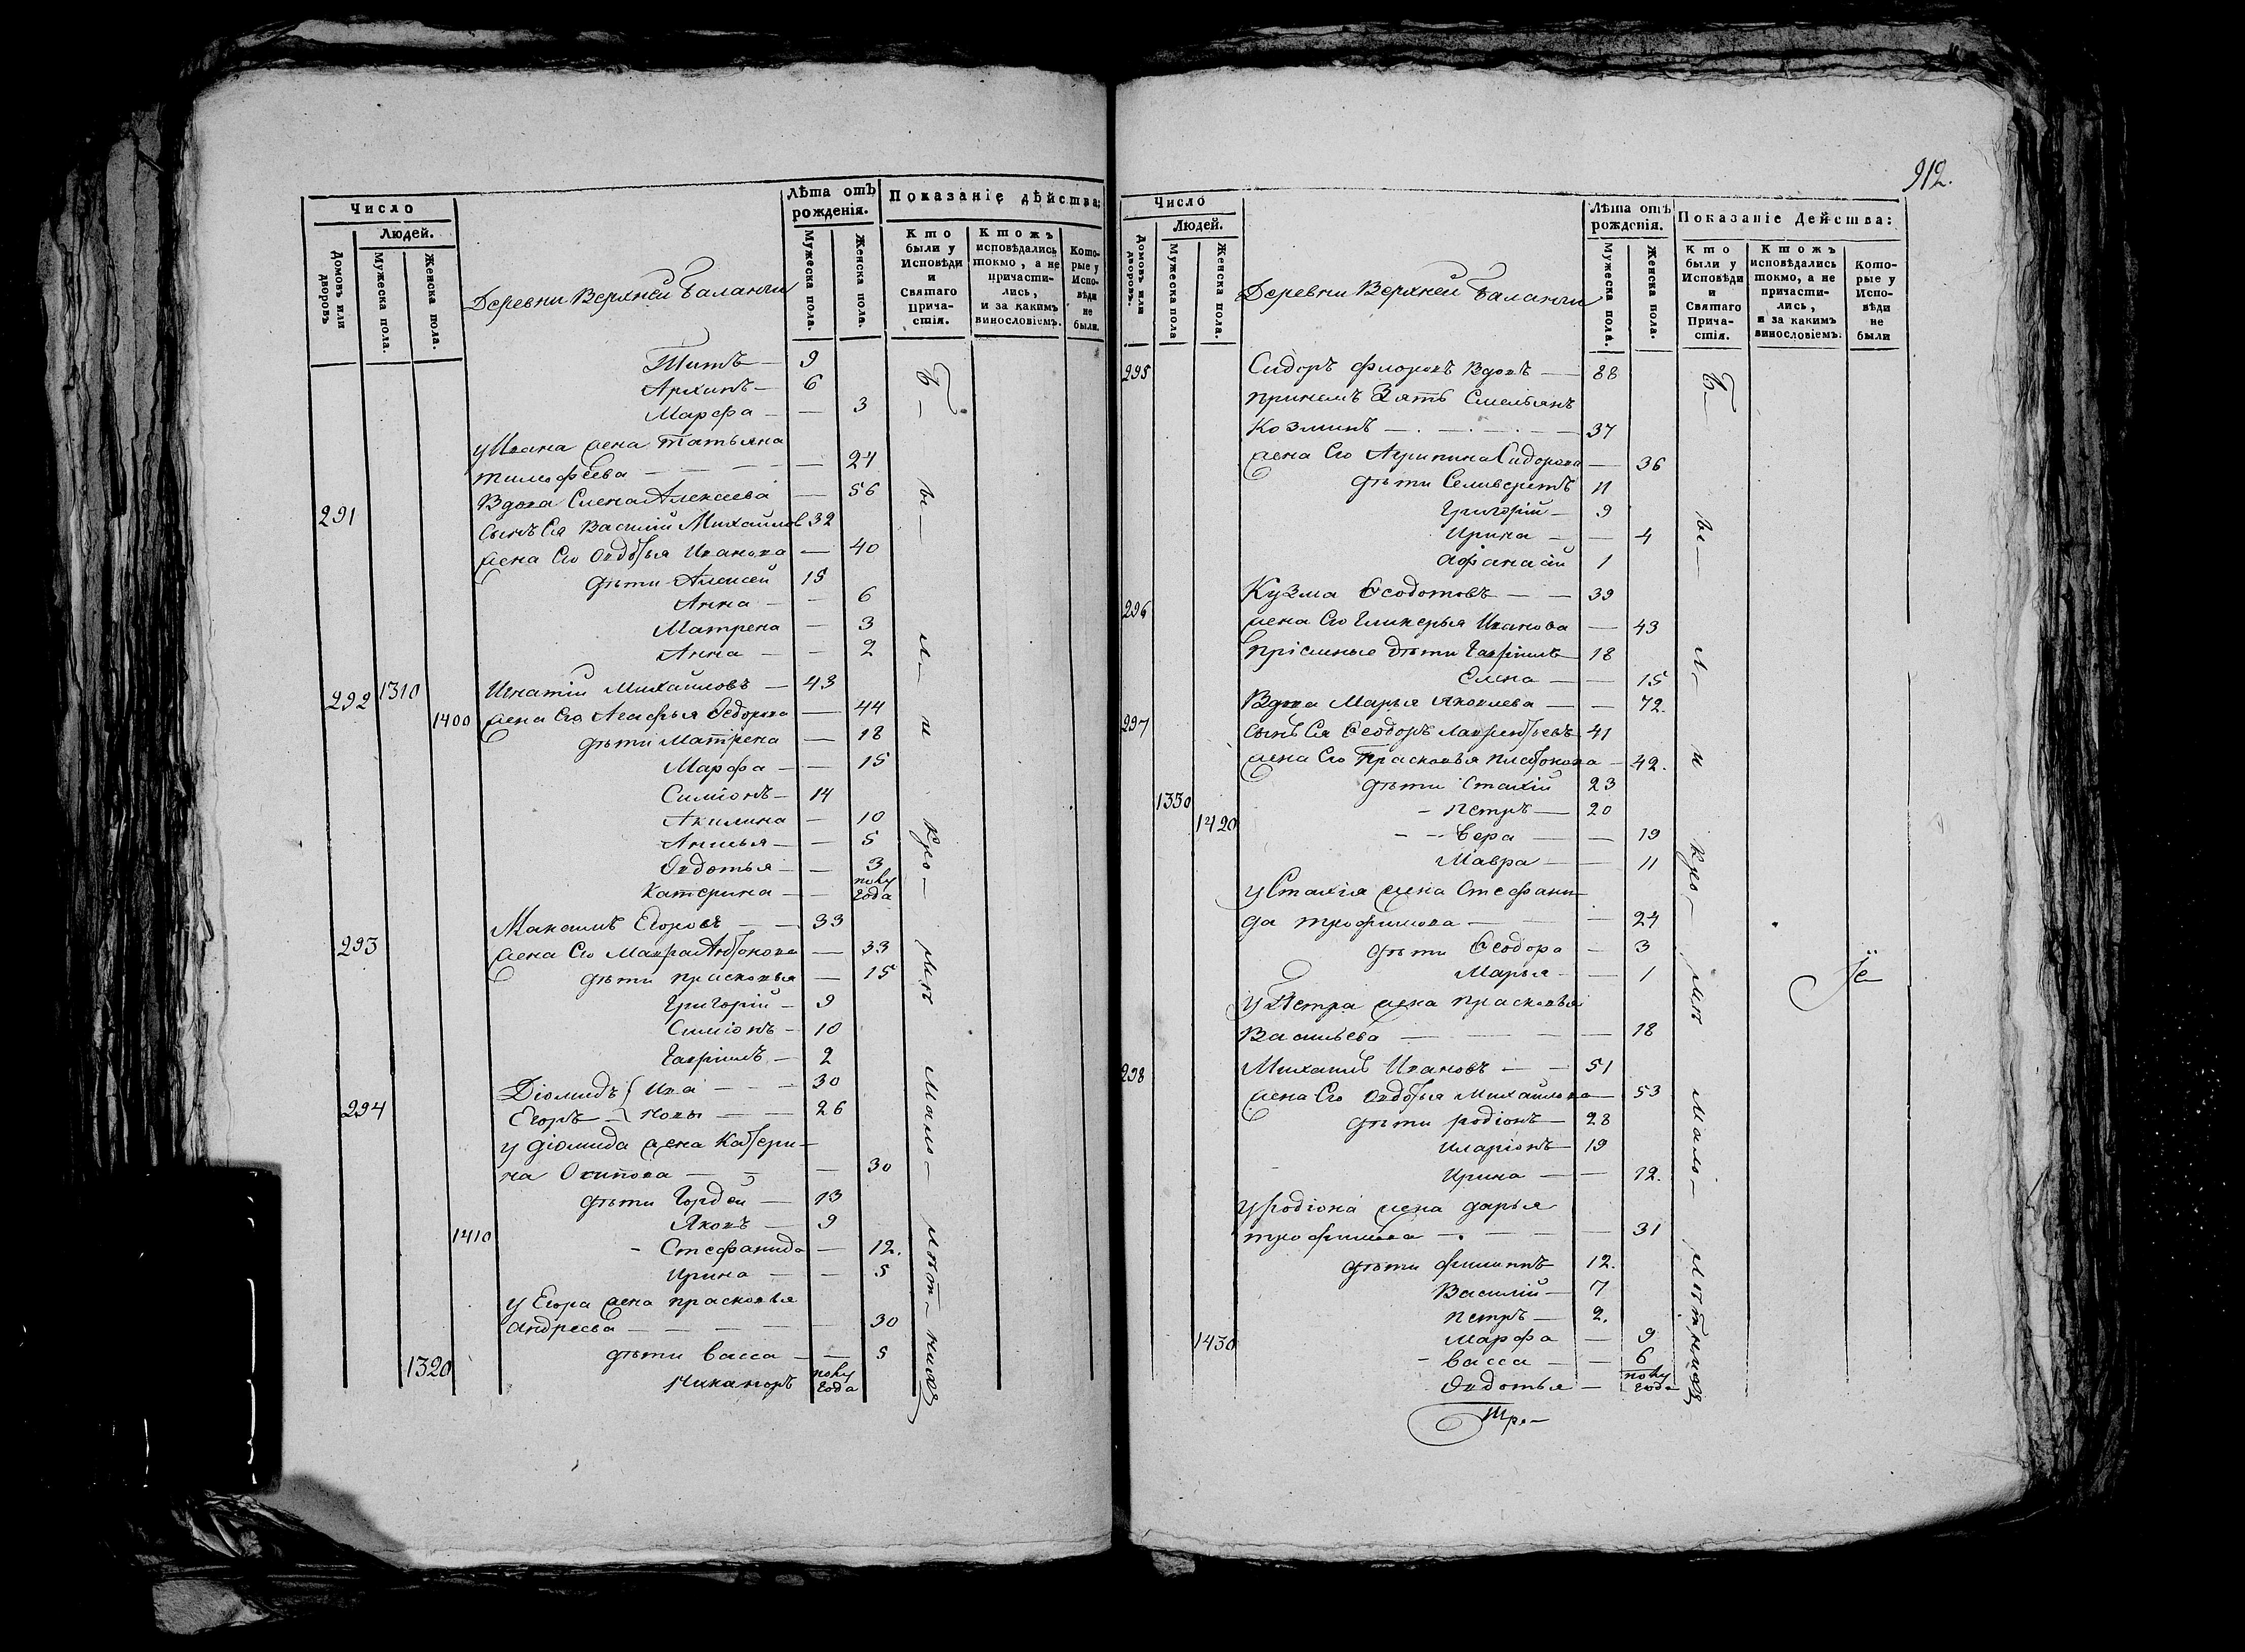 Число
Людей.
Домовъ или дворовъ
Мужеска пола.
Женска пола.
Деревни Верхней Баланчи
Лѣта отъ рожденія.
Мужеска пола.
Женска пола.
Показаніе дѣйства:
Кто были у Исповѣди и Святаго Прича-стія.
Ктожъ исповѣдались токмо, а не причасти-лись, и за какимъ винословіемъ.
Кото-рые у Испо-вѣди не были.
Титъ — 9
Архипъ — 6
Марфа — — 3
у Ивана жена Татьяна
тимофеева — — — 24
291 Вдова Елена Алексеева — 56
сынъ Ея Василій Михайлов 32
жена Его Овдотья Иванова — 40
дѣти Алексей 15
Анна — — 6
Матрена — 3
Анна — — 2
292 1310 Игнатій Михайловъ — 43
1400 жена Его Агафья Федорова — 44
дѣти Матрена — 18
Марфа — — 15
Симіонъ — 14
Акилина — 10
Анисья — — 5
Овдотья — — 3
Катерина — — полу года
293 Максимъ Егоровъ — — 33
жена Его Мавра Антонова — 33
дѣти прасковья — 15
Григорій — 9
Симіонъ — 10
Гавріилъ — 2
294 Діомидъ Ива — — 30
Егоръ — новы — — 26
у діомида жена Катери-
на Осипова — — — 30
дѣти Гордей — 13
Яковъ — 9
1410 - Стефанида — 12.
Ирина — — 5
у Егора жена прасковья
андреева — — — — 30
дѣти васса — — 5
1320 Никаноръ полу года
Бы- ли и кро- мѣ мало- лѣт- нихъ
912.
Число
Людей.
Домовъ или дворовъ.
Мужеска пола
Женска пола.
Деревни Верхней Баланчи
Лѣта отъ рожденія.
Мужеска пола.
Женска пола.
Показаніе Действа:
Кто были у Исповѣди и Святаго Прича-стія.
Ктожъ исповѣдались токмо, а не причасти-лись, и за какимъ винословіемъ.
Кото-рые у Испо-вѣди не были
295 Сидоръ фроловъ вдовъ — 88
принемъ Зять Емельянъ
Козминъ — . — . — . — 37
жена Его Аграпина Сидорова — 36
дѣти Селиверстъ 11
Григорій — 9
Ирина — — 4
Афанасій 1
296 Кузма Феодотовъ — — 39
жена Его Гликерья Иванова — 43
пріемные дѣти Гавріилъ 18
Елена — — 15
297 Вдова Марья яковлева — — 72.
сынъ Ея Феодоръ Лаврентьевъ 41
жена Его Прасковья платонова — 42.
дѣти Стахій 23
1330 - петръ — 20
1420 - - вера — — 19
Мавра — — 11
у Стахія жена Стефани-
да трофимова — — — 24
дѣти Феодора — 3
Марья — — 1
у Петра жена прасковья
Васильева — — — 18
298 Михаилъ Ивановъ — — 51
жена Его Овдотья Михайлова — 53
дѣти родіонъ — 28
иларіонъ — 19
Ирина — — 12.
у родіона жена дарья
трофимова — . — — 31
дѣти филиппъ 12.
Василій — 7
петръ — 2.
1430 Марфа — 9
- васса — — 6
Овдотья — полу года
Бы- ли и кро- мѣ мало- лѣтнихъ